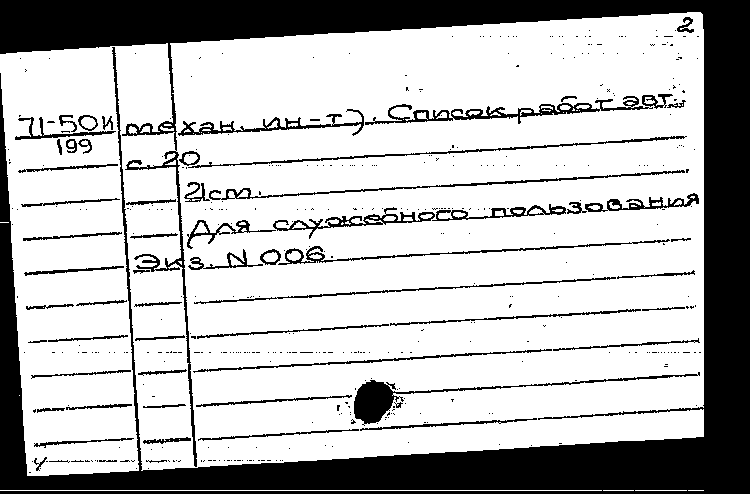 2
71-50И механ. ин-т). Список работ авт.:
199
с. 20.
21ст.
Для служебного пользования
Экз. N 006.